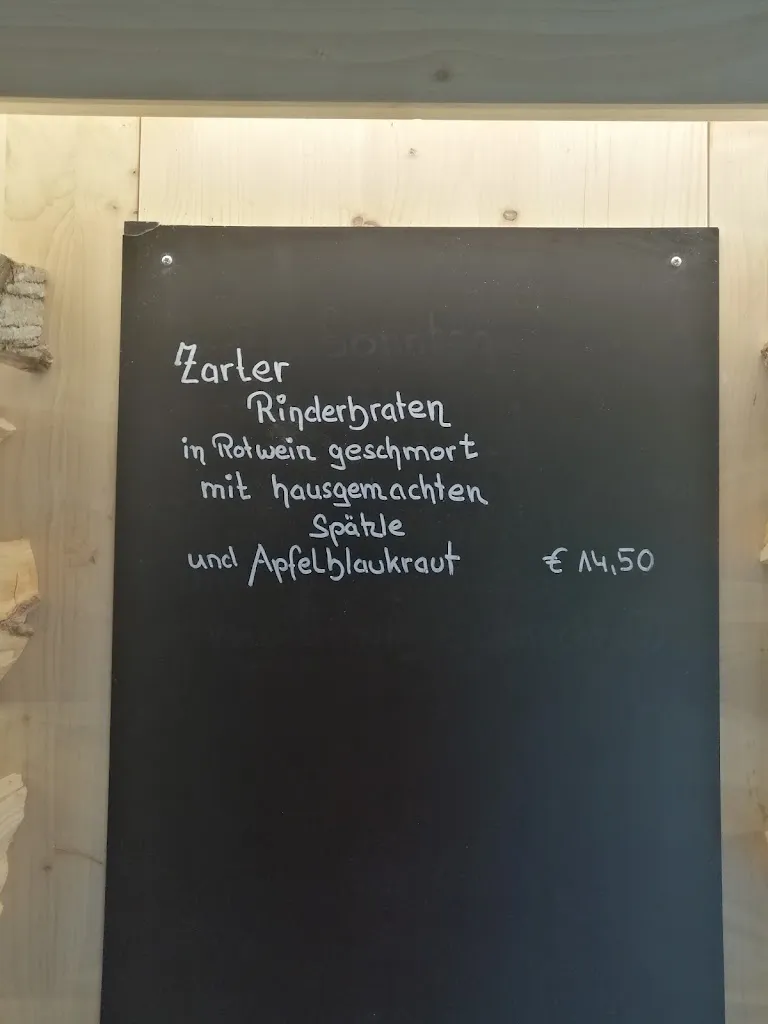 Zarter
Rinderbraten
in Rotwein geschmort
mit hausgemachten
Spätzle
und Apfelblaukraut € 14,50